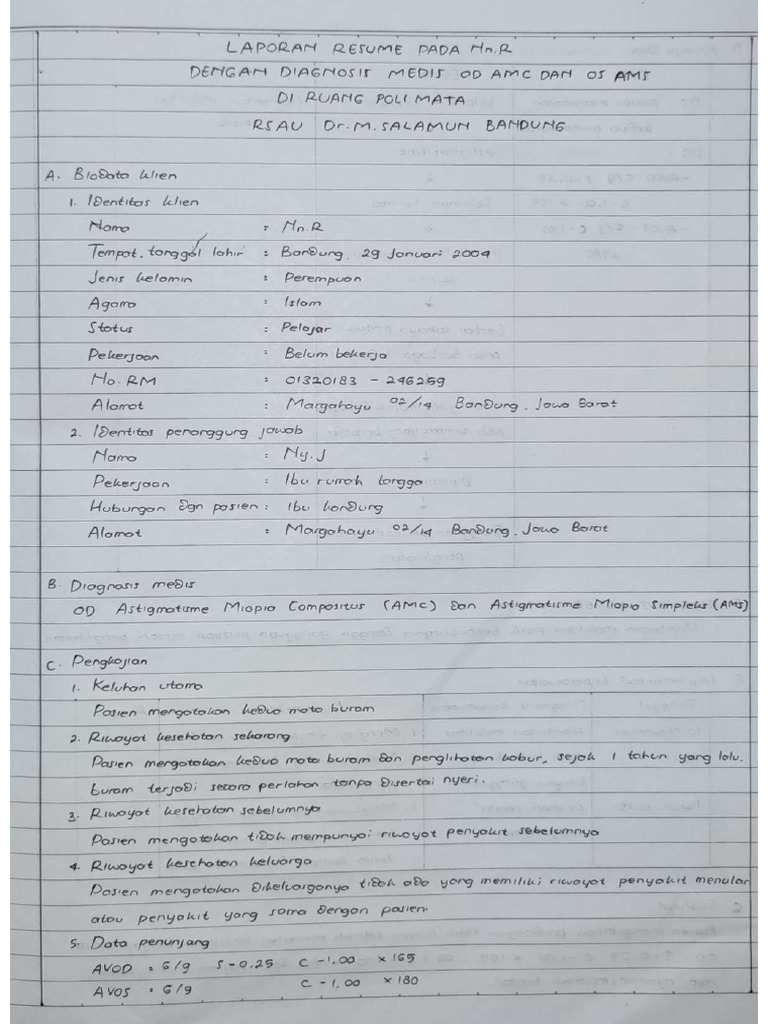 LAPORAN RESUME PADA Nn.R
DENGAN DIAGNOSIS MEDIS OD AMC DAN OS AMS
DI RUANG POLI MATA
RSAU Dr.M.SALAMUN BANDUNG
A. Biodata klien
1. Identitas klien
Nama : Nn.R
Tempat, tanggal lahir : Bandung, 29 Januari 2004
Jenis kelamin : Perempuan
Agama : Islam
Status : Pelajar
Pekerjaan : Belum bekerja
No.RM : 01320183 - 246259
Alamat : Margahayu 02/14 Bandung, Jawa Barat
2. Identitas penanggung jawab
Nama : Ny.J
Pekerjaan : Ibu rumah tangga
Hubungan dgn pasien : Ibu kandung
Alamat : Margahayu 02/14 Bandung, Jawa Barat
B. Diagnosis medis
OD Astigmatisme Miopia Compositus (AMC) dan Astigmatisme Miopia Simpleks (AMS)
C. Pengkajian
1. Keluhan utama
Pasien mengatakan kedua mata buram
2. Riwayat kesehatan sekarang
Pasien mengatakan kedua mata buram dan penglihatan kabur, sejak 1 tahun yang lalu.
buram terjadi secara perlahan tanpa disertai nyeri.
3. Riwayat kesehatan sebelumnya
Pasien mengatakan tidak mempunyai riwayat penyakit sebelumnya
4. Riwayat kesehatan keluarga
Pasien mengatakan dikeluarganya tidak ada yang memiliki riwayat penyakit menular
atau penyakit yang sama dengan pasien.
5. Data penunjang
AVOD = 6/9 S-0.25 C-1.00 x 165
AVOS = 6/9 C-1.00 x 180